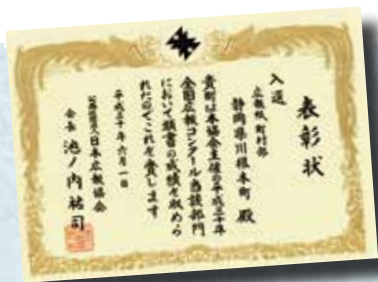 表彰状
入選
広報紙 町村部
静岡県川根本町 殿
貴町は本協会主催の平成三十年
全国広報コンクール当該部門
において頭書の成績を収めら
れたのでこれを賞します
平成三十年六月一日
公益社団法人日本広報協会
会長 池ノ内祐司